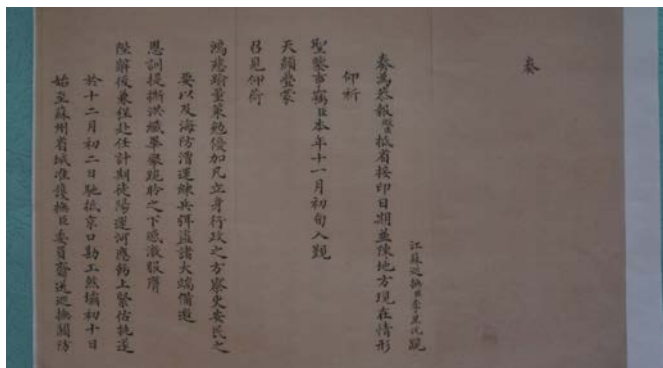 奏
江蘇巡撫臣李星沅跪
奏為恭報微臣抵省接印日期並陳地方現在情形
仰祈
聖鑒事竊臣本年十一月初旬入覲
天顏疊蒙
召見仰荷
鴻慈踰量策勉優加凡立身行政之方察吏安民之
要以及海防漕運練兵弭盜諸大端備邀
恩訓提撕洪纖畢舉跪聆之下感激服膺
陛辭後兼程赴任計期徒陽運河應飭上緊估挑遂
於十二月初二日馳抵京口勘工煞壩初十日
始至蘇州省城准護撫臣委員齎送巡撫關防